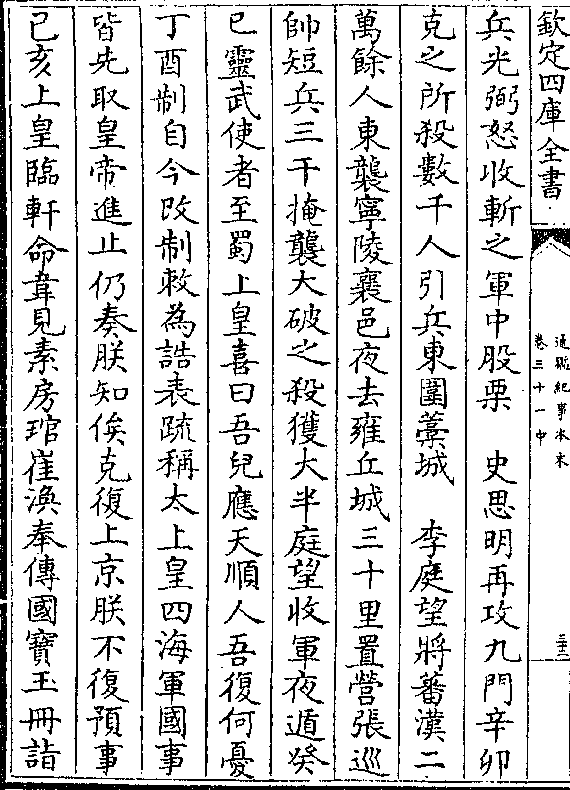 欽定四庫全書
通鑑紀事本末
卷三十一中
三十三
兵光弼怒收斬之軍中股栗　史思明再攻九門辛卯
克之所殺數千人引兵東圍藁城　李庭望將蕃漢二
萬餘人東襲寧陵襄邑夜去雍丘城三十里置營張巡
帥短兵三千掩襲大破之殺獲大半庭望收軍夜遁癸
巳靈武使者至蜀上皇喜曰吾兒應天順人吾復何憂
丁酉制自今改制敕為誥表疏稱太上皇四海軍國事
皆先取皇帝進止仍奏朕知俟克復上京朕不復預事
己亥上皇臨軒命韋見素房琯崔渙奉傳國寶玉冊詣